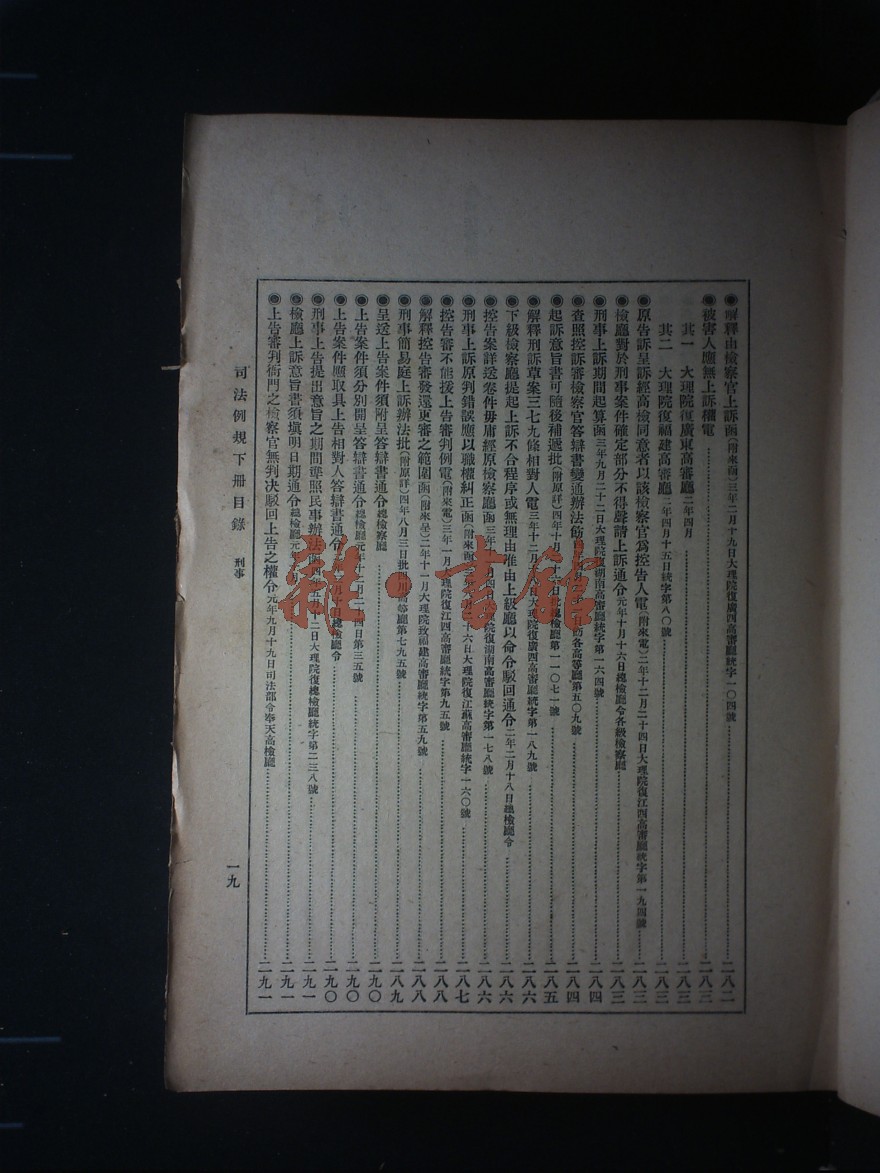 ◉解釋由檢察官上訴函(附來函)三年二月十九日大理院復廣西高審廳統字一〇四號……二八二
◉被害人應無上訴權電……二八三
其一　大理院復廣東高審廳二年四月……二八三
其二　大理院復福建高審廳二年四月十五日統字第八〇號……二八三
◉原告訴呈訴經高檢同意者以該檢察官爲控告人電(附來電)三年十二月二十四日大理院復江西高審廳統字第一九四號……二八三
◉檢廳對於刑事案件確定部分不得聲請上訴通令元年十月十六日總檢廳令各級檢察廳……二八三
◉刑事上訴期間起算函三年九月二十二日大理院復湖南高審廳統字第一六四號……二八四
◉查照控訴審檢察官答辯書變通辦法飭日飭各高等廳第五〇九號……二八四
◉起訴意旨書可隨後補遞批(附原詳)四年十月十六日批總檢廳第一一〇七一號……二八五
◉解釋刑訴草案三七九條相對人電三年十二月八日大理院復廣西高審廳統字第一八九號……二八六
◉下級檢察廳提起上訴不合程序或無理由准由上級廳以命令駁回通令二年二月十八日總檢廳令……二八六
◉控告案詳送卷件毋庸經原檢察廳函三年月四日大理院復湖南高審廳統字第一七八號……二八六
◉刑事上訴原判錯誤應以職權糾正函(附來函)三年月二十六日大理院復江蘇高審廳統字一六〇號……二八七
◉控告審不能援上告審判例電(附來電)三年一月大理院復江西高審廳統字第九五號……二八八
◉解釋控告審發還更審之範圍函(附來呈)二年十一月大理院致福建高審廳統字第五九號……二八八
◉刑事簡易庭上訴辦法批(附原詳)四年八月三日批四川高等廳第七九五號……二八九
◉呈送上告案件須附呈答辯書通令總檢察廳……二九〇
◉上告案件須分別開呈答辯書通令總檢廳元年十二月二十四日第三五號……二九〇
◉上告案件應取具上告相對人答辯書通令月十日總檢廳令……二九〇
◉刑事上告提出意旨之期間準照民事辦法函四年五月十二日大理院復總檢廳統字第二三八號……二九一
◉檢廳上訴意旨書須塡明日期通令總檢廳元年月……二九一
◉上告審判衙門之檢察官無判決駁回上告之權令元年九月十九日司法部令奉天高檢廳……二九一
司法例規下册目錄　刑事　一九
雜·書館